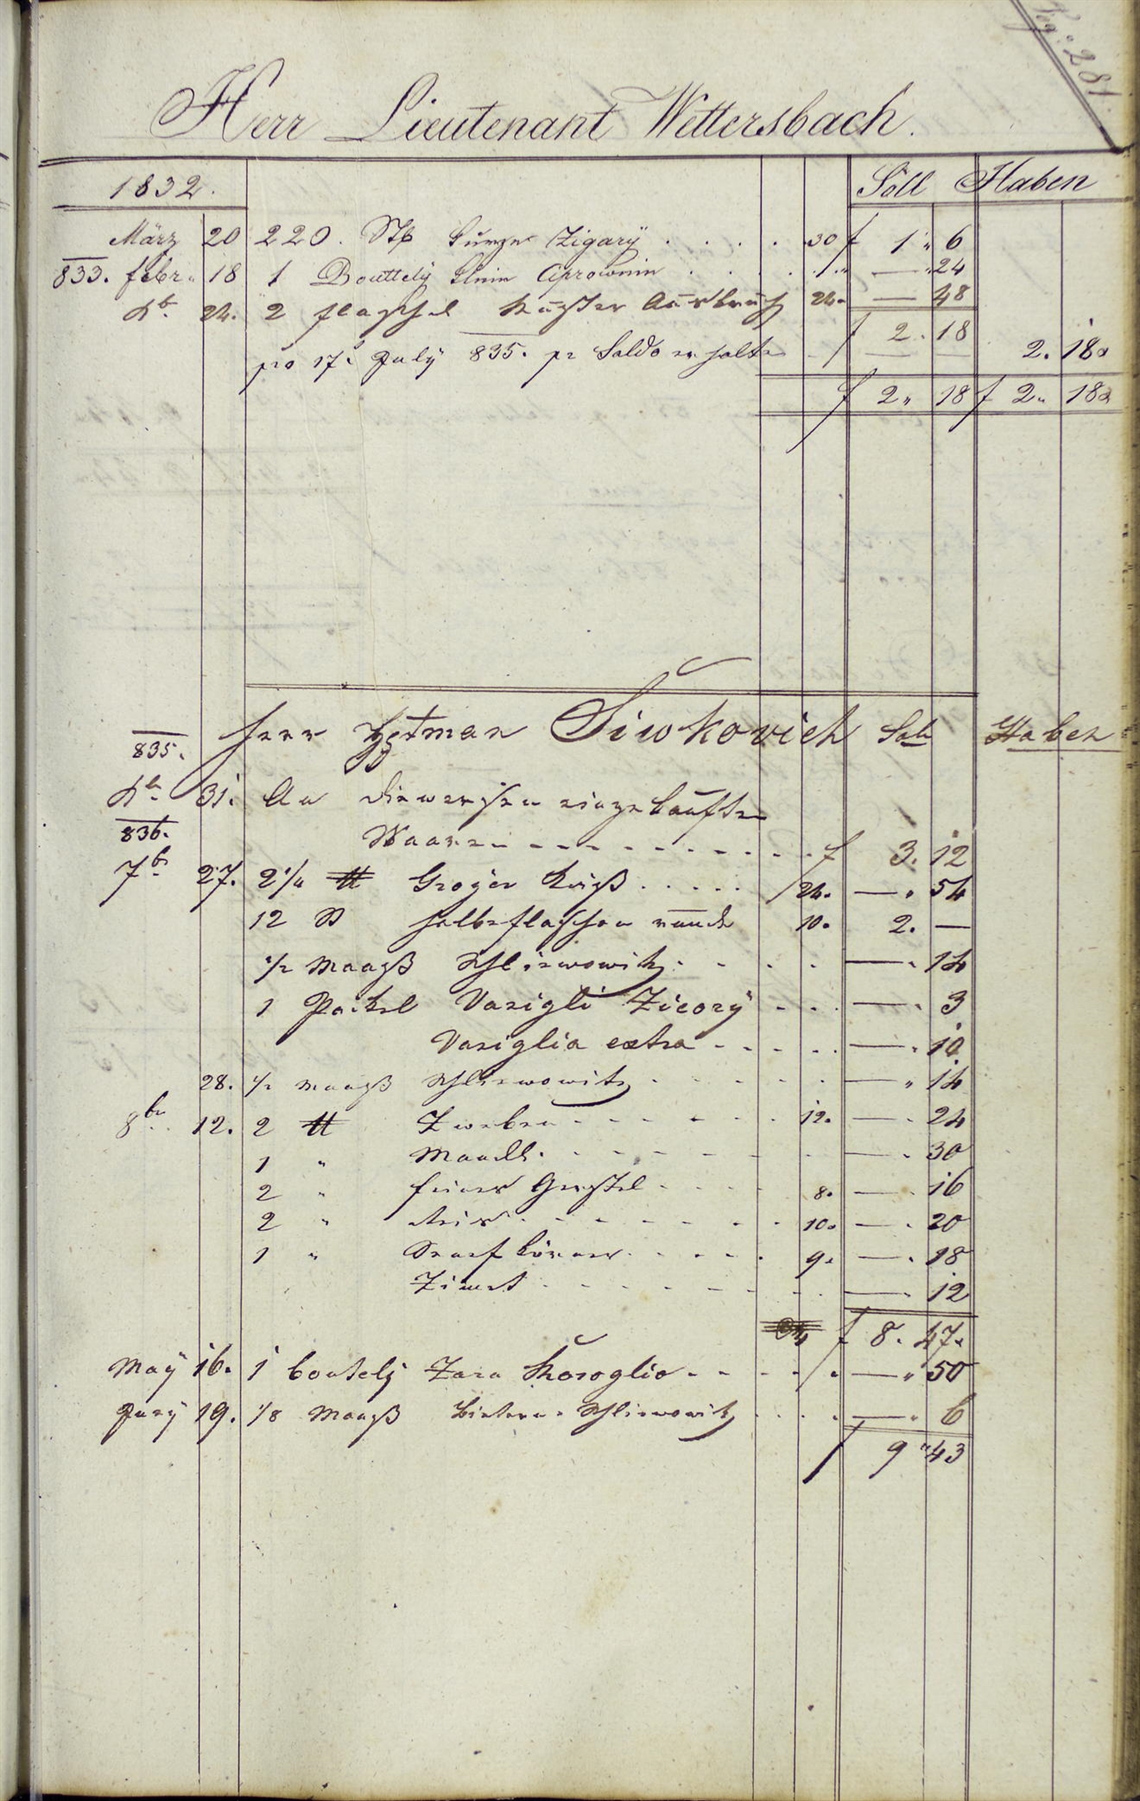 Pag: 281.
Herr Lieutenant Wettersbach.
1832. Soll Haben
März 20 220. Stk kurze Zigary . . . . 30 f 1 " 6
833. Febr. 18 1 Bouttely — " 24
Xbr 24. 2 Flaschel Ruster Ausbruch 24. — 48
f 2. 18
pro 17t July 835. pr Saldo erhalten 2. 18
f 2 " 18 f 2 " 18
Herr Hptman Siwkovich Soll Haben
835.
Xbr 31. An diversen eingekauften
Waaren f 3. 12
836.
7br 27. 2 1/4 ℔ Grozer Reiß . . . . . 24. — . 54
12 St halbe Flaschen runde 10. 2. —
1/2 Maaß Schliwowitz . . . . — . 14
1 Packel Vaniglie Zicory - . . — . 3
Vaniglia extra - - - . . — . 10
28. 1/2 Maaß Schliwowitz . . . . . . — " 14
8br 12. 2 ℔ Zweben - - - - - - 12. — . 24
1 " Mandl. - - - - - - — . 30
2 " feines Gerstel - - - 8. — . 16
2 " Reis - - - - - - 10. — . 20
1 " Senf Körner . . . . 9. — . 18
Zimet - - - - - - — . 12
f 8. 47.
May 16. 1 Boutely Zara Rosoglio - - - - — " 50
Juny 19. 1/8 Maaß Schliwowitz . . . . — " 6
f 9 " 43